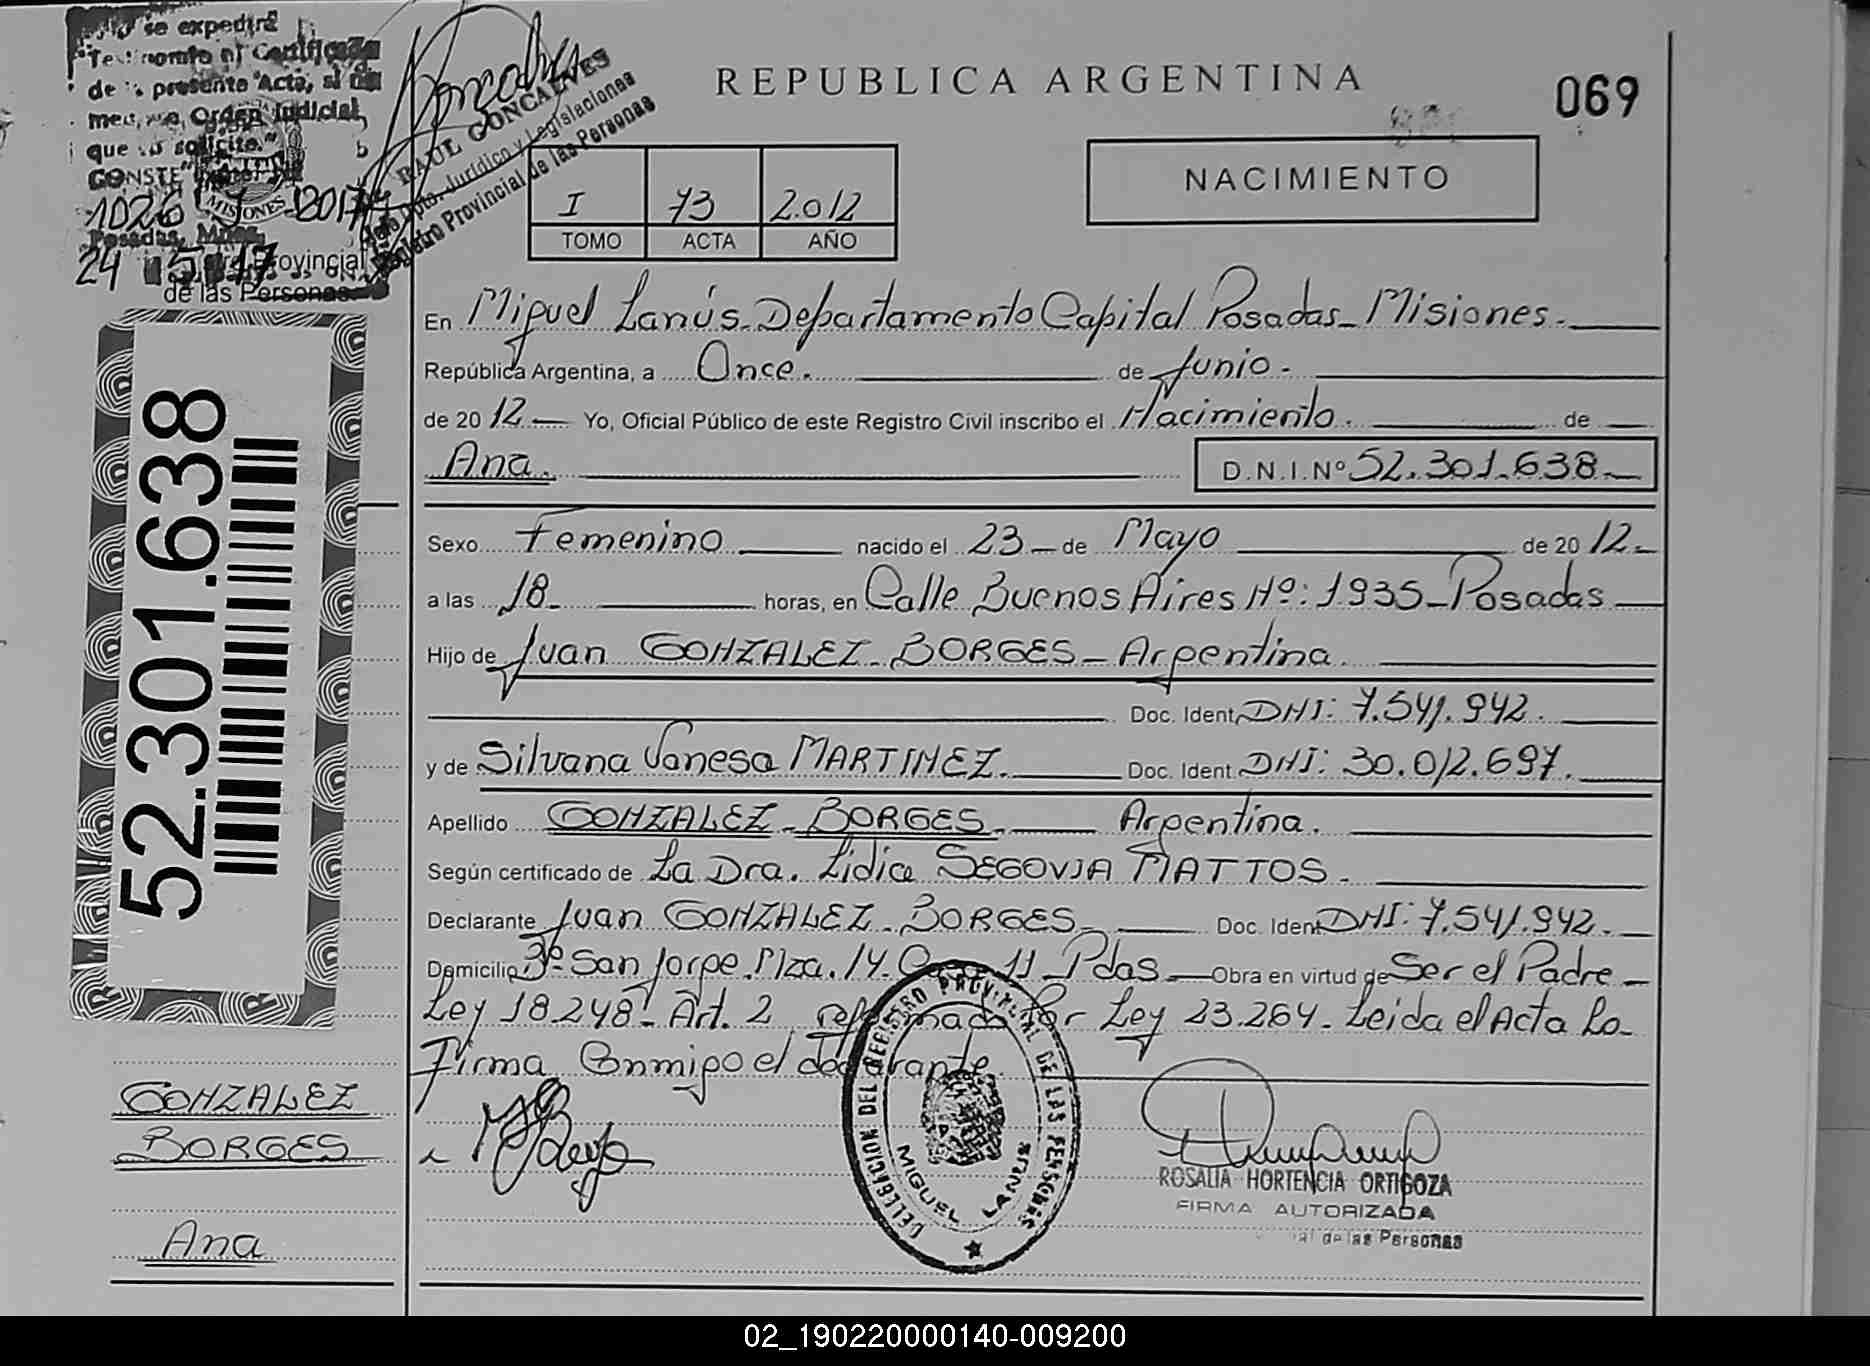 se expedirá
Testimonio ni Certificado
de la presente Acta, si no
mediare Orden Judicial,
que lo solicite."
CONSTE
1026 2017
MISIONES
Posadas, Mnes,
24 5 17
Provincial
de las Personas
RAUL GONCALVES
Dpto. Jurídico y Legislaciones
Registro Provincial de las Personas
REPUBLICA ARGENTINA
069
I 73 2.012
TOMO ACTA AÑO
NACIMIENTO
En Miguel Lanús - Departamento Capital Posadas - Misiones.
República Argentina, a Once. de Junio.
de 20 12 Yo, Oficial Público de este Registro Civil inscribo el Nacimiento. de
Ana. D.N.I.Nº 52.301.638
Sexo Femenino nacido el 23 de Mayo de 20 12
a las 18 horas, en Calle Buenos Aires Nº: 1935 - Posadas
Hijo de Juan GONZALEZ - BORGES - Argentina.
Doc. Ident. DNI: 7.541.942.
y de Silvana Vanesa MARTINEZ. Doc. Ident. DNI: 30.012.697.
Apellido GONZALEZ - BORGES. Argentina.
Según certificado de La Dra. Lidia SEGOVIA MATTOS.
Declarante Juan GONZALEZ - BORGES Doc. Ident. DNI: 7.541.942.
Domicilio Bº San Jorge. Mza. 14. Casa 11 - Pdas - Obra en virtud de Ser el Padre
Ley 18.248 - Art. 2 reformado Por Ley 23.264 - Leida el Acta La
Firma Conmigo el declarante.
52.301.638
GONZALEZ
BORGES
Ana
DELEGACION DEL REGISTRO PROVINCIAL DE LAS PERSONAS
MIGUEL LANUS
ROSALIA HORTENCIA ORTIGOZA
FIRMA AUTORIZADA
de las Personas
02_190220000140-009200